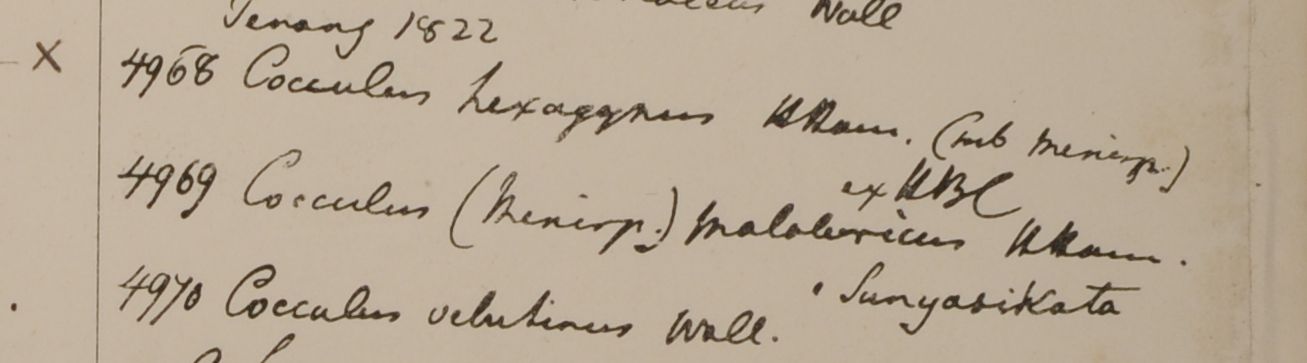 Wall
Penang 1822
X 4968 Cocculus hexagynus HHam. (sub Menisp.)
ex HBC
4969 Cocculus (Menisp.) malabaricus HHam.
Sunyasikata
4970 Cocculus velutinus Wall.